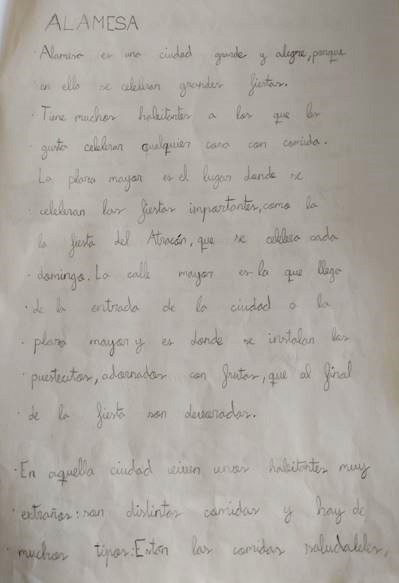 ALAMESA
Alamesa es una ciudad grande y alegre, porque
en ella se celebran grandes fiestas.
Tiene muchos habitantes a los que les
gusta celebrar cualquier cosa con comida.
La plaza mayor es el lugar donde se
celebran las fiestas importantes, como la
la fiesta del Atracón, que se celebra cada
domingo. La calle mayor es la que llega
de la entrada de la ciudad a la
plaza mayor y es donde se instalan los
puestecitos, adornados con frutas, que al final
de la fiesta son devoradas.
En aquella ciudad viven unos habitantes muy
extraños: son distintas comidas y hay de
muchos tipos: Están las comidas saludables,